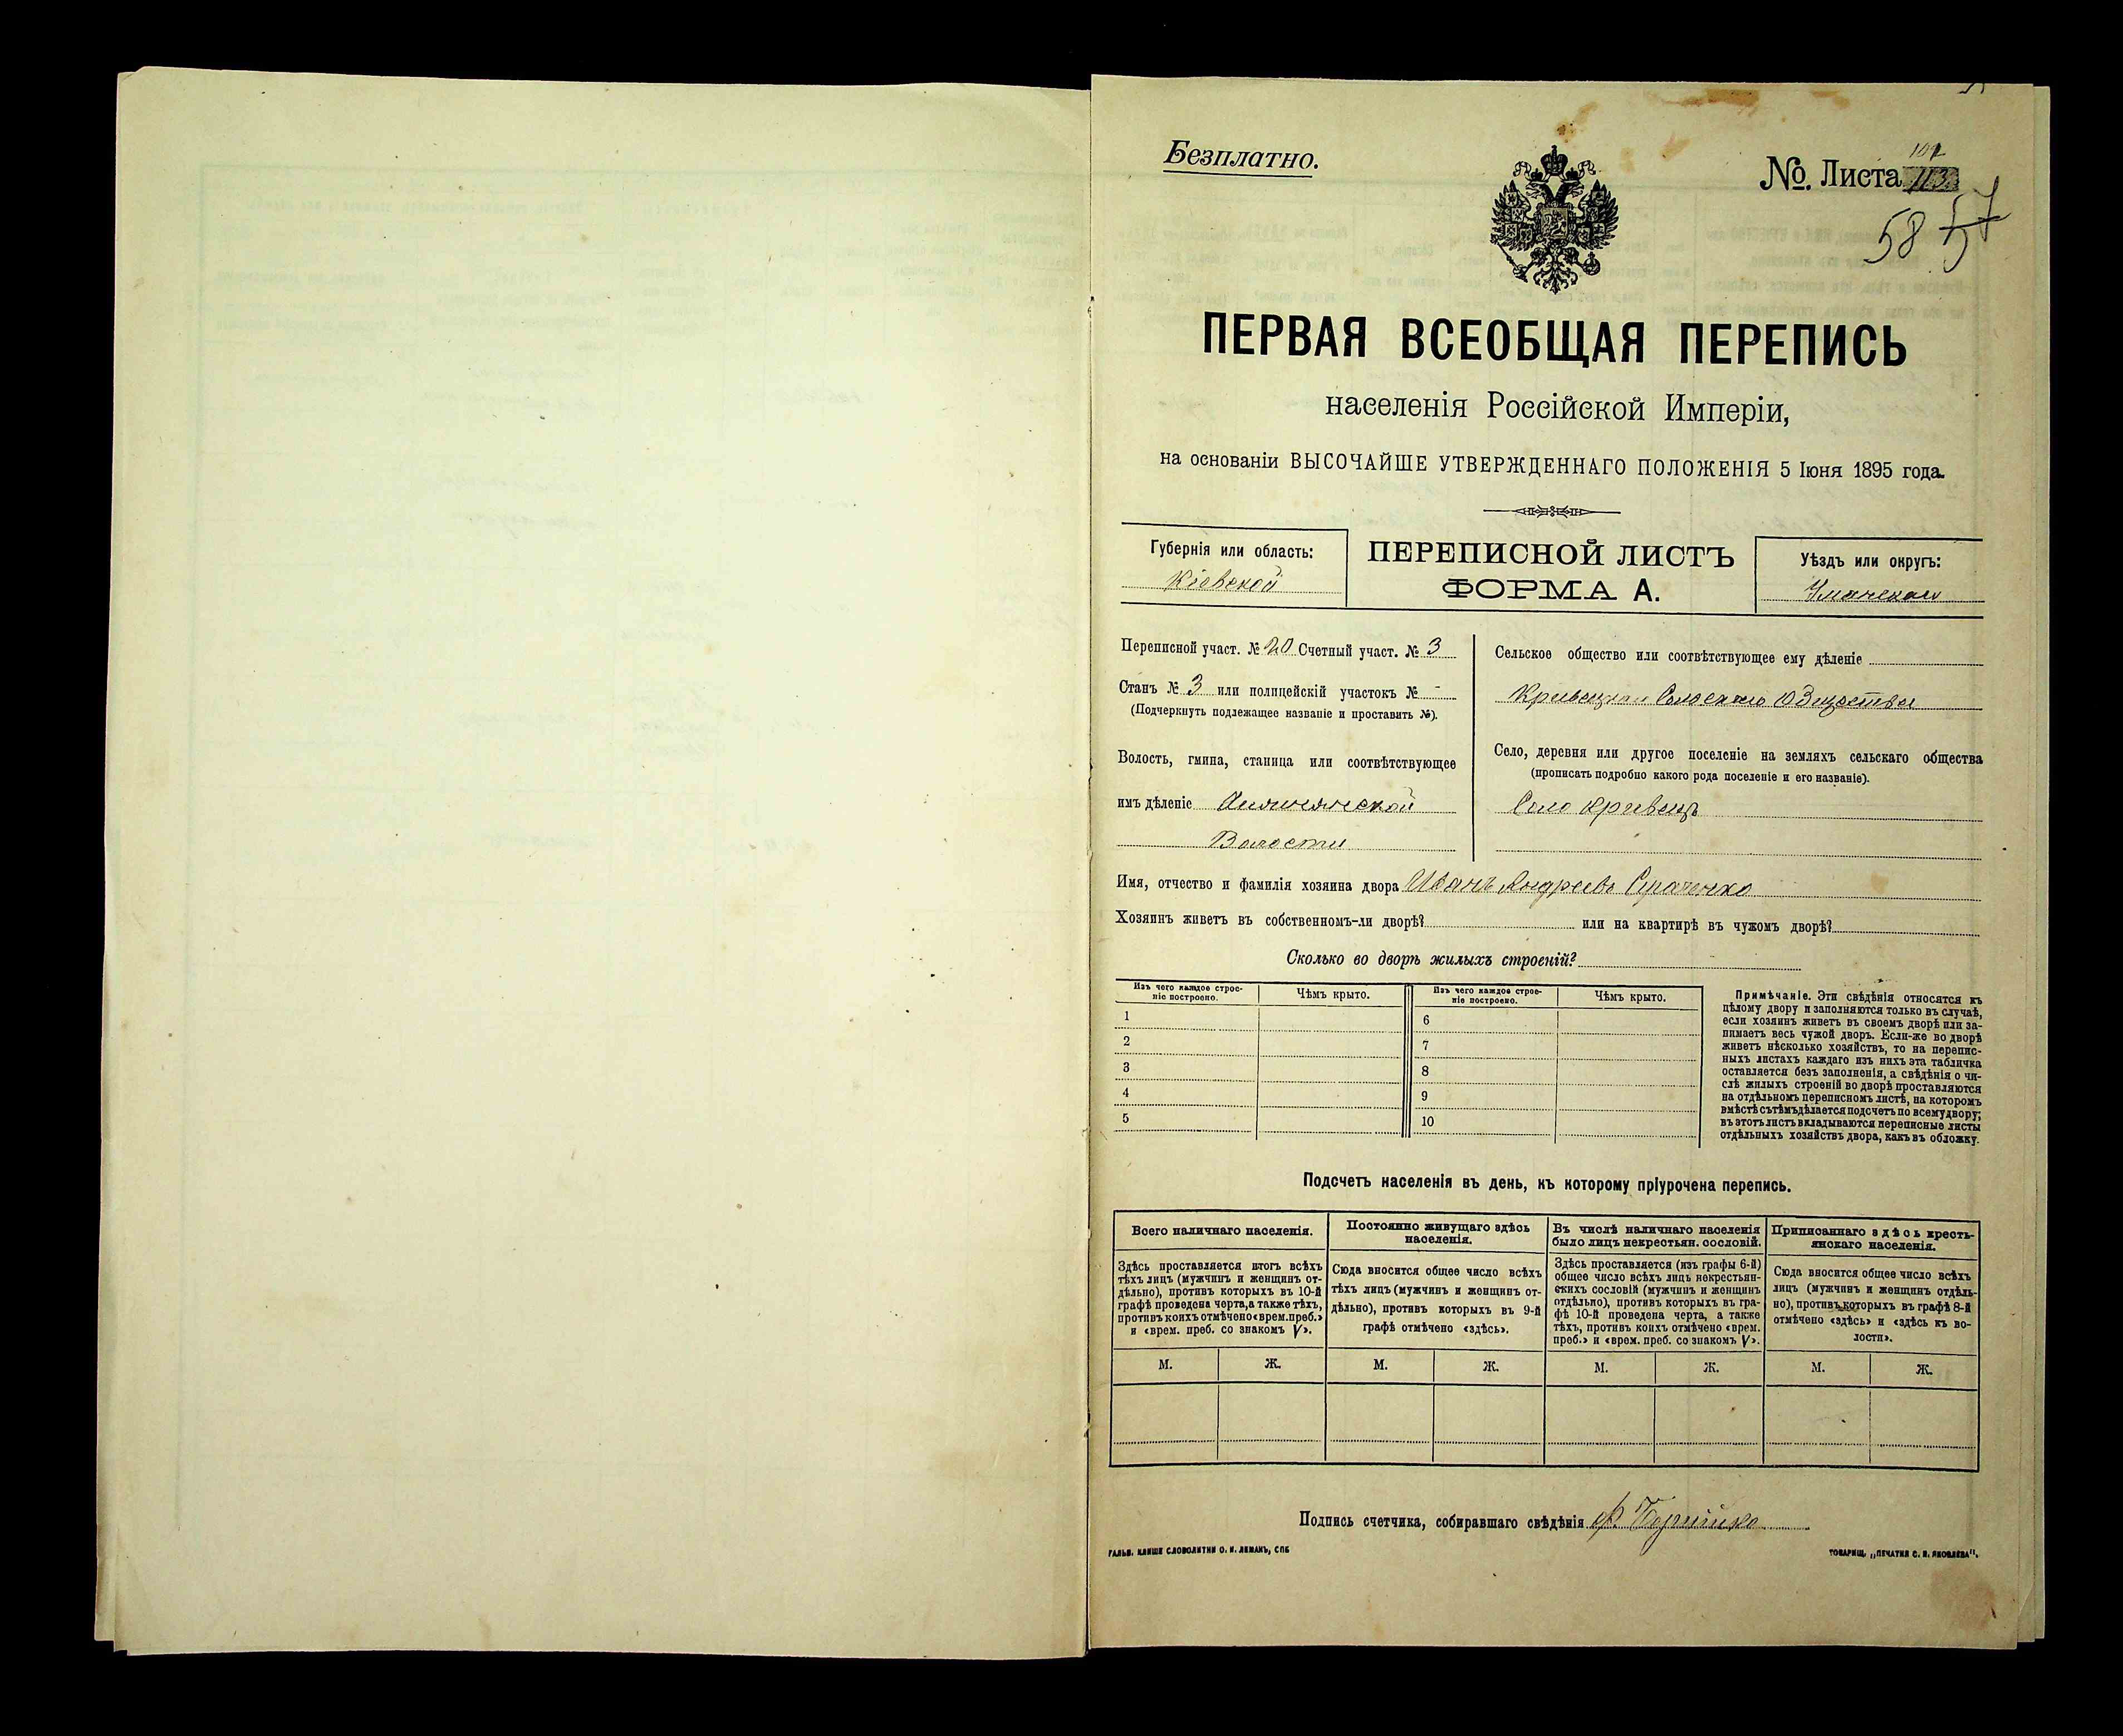 Безплатно.
№. Листа 113.
58 57
ПЕРВАЯ ВСЕОБЩАЯ ПЕРЕПИСЬ
населенія Россійской Имперіи,
на основаніи ВЫСОЧАЙШЕ УТВЕРЖДЕННАГО ПОЛОЖЕНІЯ 5 Іюня 1895 года.
Губернія или область:
Кіевской
ПЕРЕПИСНОЙ ЛИСТЪ
ФОРМА А.
Уѣздъ или округъ:
Уманскаго
Переписной участ. № 20 Счетный участ. № 3
Станъ № 3 или полицейскій участокъ № -
(Подчеркнуть подлежащее названіе и проставить №).
Волость, гмина, станица или соотвѣтствующее
имъ дѣленіе
Волости
Сельское общество или соотвѣтствующее ему дѣленіе
Сельскаго Общества
Село, деревня или другое поселеніе на земляхъ сельскаго общества
(прописать подробно какого рода поселеніе и его названіе).
Село Кривецъ
Имя, отчество и фамилія хозяина двора Иванъ Андреевъ
Хозяинъ живетъ въ собственномъ-ли дворѣ? или на квартирѣ въ чужомъ дворѣ?
Сколько во дворѣ жилыхъ строеній?
Изъ чего каждое строе-
ніе построено.
Чѣмъ крыто.
Изъ чего каждое строе-
ніе построено.
Чѣмъ крыто.
1
2
3
4
5
6
7
8
9
10
Примѣчаніе. Эти свѣдѣнія относятся къ
цѣлому двору и заполняются только въ случаѣ,
если хозяинъ живетъ въ своемъ дворѣ или за-
нимаетъ весь чужой дворъ. Если-же во дворѣ
живетъ нѣсколько хозяйствъ, то на перепис-
ныхъ листахъ каждаго изъ нихъ эта табличка
оставляется безъ заполненія, а свѣдѣнія о чи-
слѣ жилыхъ строеній во дворѣ проставляются
на отдѣльномъ переписномъ листѣ, на которомъ
вмѣстѣ съ тѣмъ дѣлается подсчетъ по всему двору;
въ этотъ листъ вкладываются переписные листы
отдѣльныхъ хозяйствъ двора, какъ въ обложку.
Подсчетъ населенія въ день, къ которому пріурочена перепись.
Всего наличнаго населенія.
Здѣсь проставляется итогъ всѣхъ
тѣхъ лицъ (мужчинъ и женщинъ от-
дѣльно), противъ которыхъ въ 10-й
графѣ проведена черта, а также тѣхъ,
противъ коихъ отмѣчено «врем. преб.»
и «врем. преб. со знакомъ V».
М. Ж.
Постоянно живущаго здѣсь
населенія.
Сюда вносится общее число всѣхъ
тѣхъ лицъ (мужчинъ и женщинъ от-
дѣльно), противъ которыхъ въ 9-й
графѣ отмѣчено «здѣсь».
М. Ж.
Въ числѣ наличнаго населенія
было лицъ некрестьян. сословій.
Здѣсь проставляется (изъ графы 6-й)
общее число всѣхъ лицъ некрестьян-
скихъ сословій (мужчинъ и женщинъ
отдѣльно), противъ которыхъ въ гра-
фѣ 10-й проведена черта, а также
тѣхъ, противъ коихъ отмѣчено «врем.
преб.» и «врем. преб. со знакомъ V».
М. Ж.
Приписаннаго здѣсь кресть-
янскаго населенія.
Сюда вносится общее число всѣхъ
лицъ (мужчинъ и женщинъ отдѣль-
но), противъ которыхъ въ графѣ 8-й
отмѣчено «здѣсь» и «здѣсь къ во-
лости».
М. Ж.
Подпись счетчика, собиравшаго свѣдѣнія
ГАЛЬВ. КЛИШЕ СЛОВОЛИТНИ О. И. ЛЕМАНЪ, СПБ
ТОВАРИЩ. „ПЕЧАТНЯ С. П. ЯКОВЛЕВА".